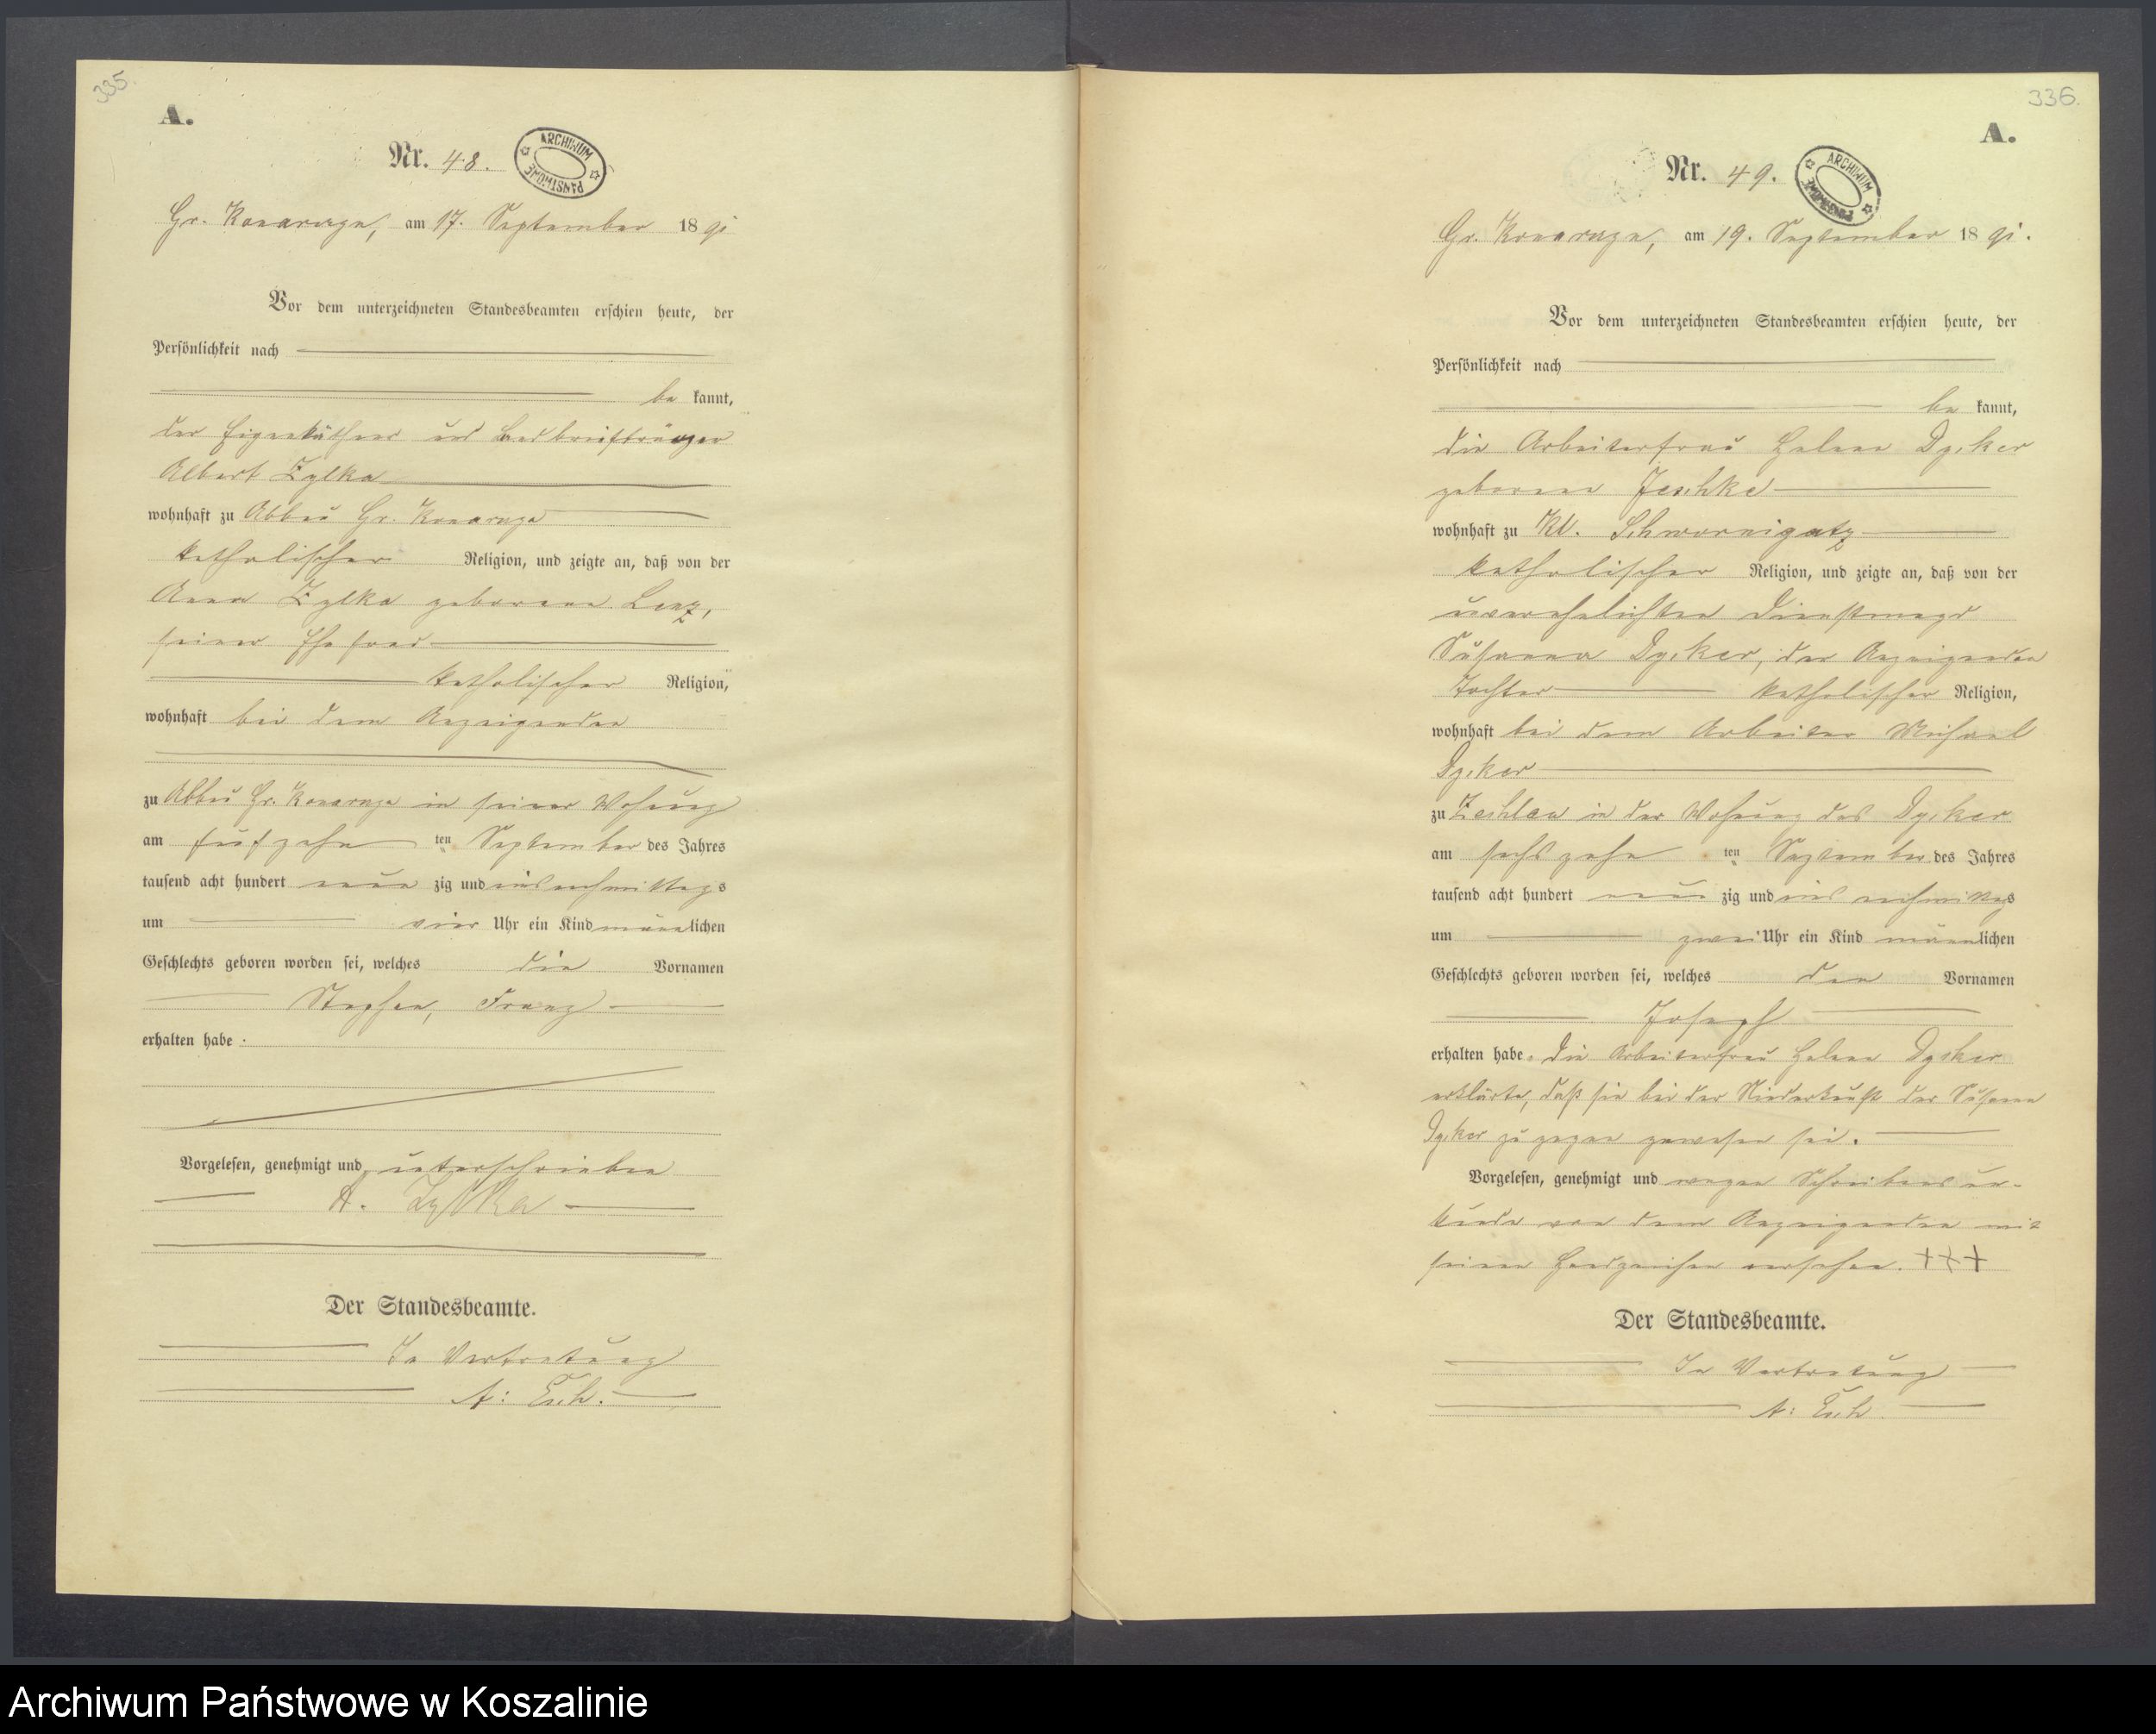 335.
A.
Nr. 48.
ARCHIWUM PAŃSTWOWE
Gr. Konarczyn, am 17. September 1891
Vor dem unterzeichneten Standesbeamten erschien heute, der
Persönlichkeit nach
be kannt,
der Eigenkäthner und Landbriefträger
Albert Zylka
wohnhaft zu Abbau Gr. Konarczyn
katholischer Religion, und zeigte an, daß von der
Anna Zylka geborene Lenz,
seiner Ehefrau
katholischer Religion,
wohnhaft bei dem Anzeigenden
zu Abbau Gr. Konarczyn in seiner Wohnung
am fünfzehn ten September des Jahres
tausend acht hundert neun zig und eins nachmittags
um vier Uhr ein Kind männlichen
Geschlechts geboren worden sei, welches die Vornamen
Stephan, Franz
erhalten habe.
Vorgelesen, genehmigt und unterschrieben
A. Zylka
Der Standesbeamte.
In Vertretung
A:
336.
A.
Nr. 49.
ARCHIWUM PAŃSTWOWE
Gr. Konarczyn, am 19. September 1891.
Vor dem unterzeichneten Standesbeamten erschien heute, der
Persönlichkeit nach
be kannt,
die Arbeiterfrau Helene Dysker
geborene Jeschke
wohnhaft zu Kl. Schwornigatz
katholischer Religion, und zeigte an, daß von der
unverehelichten Dienstmagd
Susanna Dysker, der Anzeigenden
Tochter katholischer Religion,
wohnhaft bei dem Arbeiter Michael
Dysker
zu in der Wohnung des Dysker
am sechszehn ten September des Jahres
tausend acht hundert neun zig und eins nachmittags
um zwei Uhr ein Kind männlichen
Geschlechts geboren worden sei, welches den Vornamen
Joseph
erhalten habe. Die Arbeiterfrau Helene Dysker
erklärte, daß sie bei der Niederkunft der Susanna
Dysker zugegen gewesen sei.
Vorgelesen, genehmigt und wegen Schreibens un-
kunde von dem Anzeigenden mit
seinem Handzeichen versehen. +++
Der Standesbeamte.
In Vertretung
A:
Archiwum Państwowe w Koszalinie